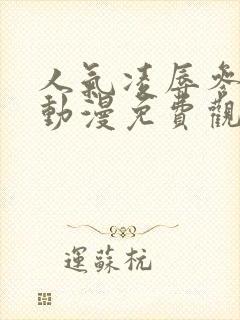 人氣凌辱參
動漫免費觀
運蘇杭